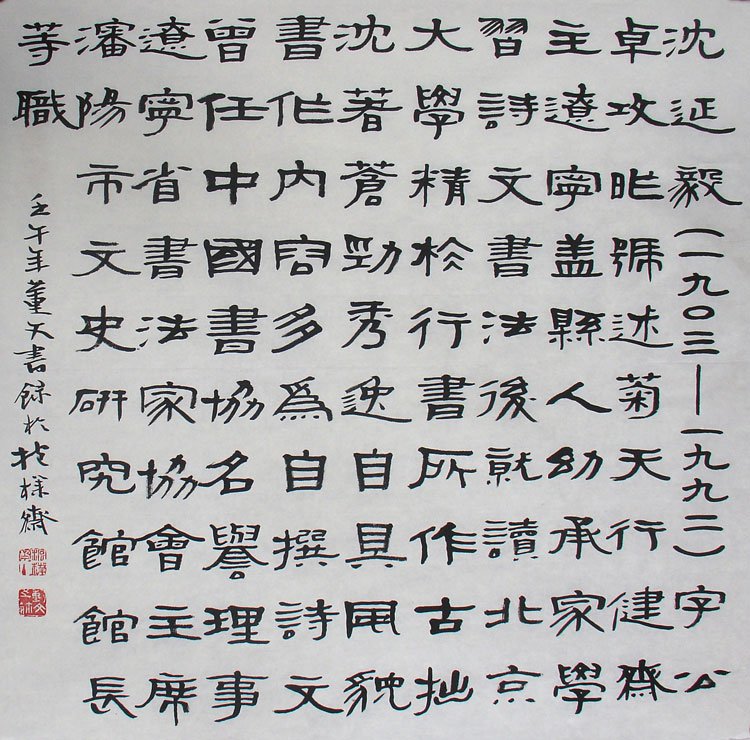 沈延毅（一九〇三—一九九二）字公
卓攻昨號述菊天行健齋
主遼寧盖縣人幼承家學
習詩文書法後就讀北京
大學精於行書所作古拙
沈著蒼勁秀逸自具風貌
書作內容多為自撰詩文
曾任中國書協名譽理事
遼寧省書法家協會主席
瀋陽市文史研究館館長
等職
壬午年董文書錄於齋